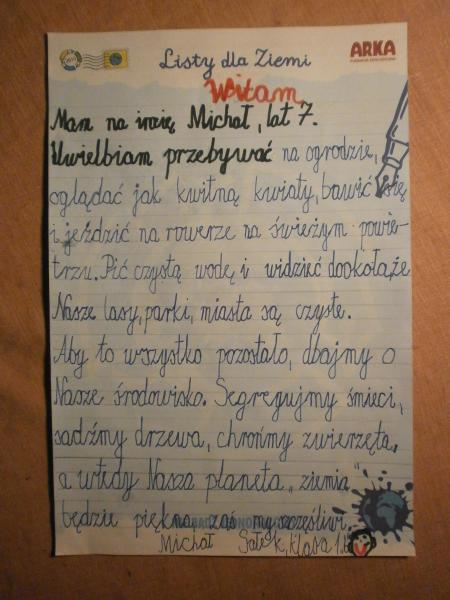 Listy dla Ziemi
ARKA
Witam
Mam na imię Michał, lat 7.
Uwielbiam przebywać na ogrodzie,
oglądać jak kwitną kwiaty, bawić się
i jeździć na rowerze na świeżym powie-
trzu. Pić czystą wodę i widzieć dookoła, że
Nasze lasy, parki, miasta są czyste.
Aby to wszystko pozostało, dbajmy o
Nasze środowisko. Segregujmy śmieci,
sadźmy drzewa, chrońmy zwierzęta,
a wtedy Nasza planeta „ziemia"
będzie piękna, zaś my szczęśliwi.
Michał klasa 1b